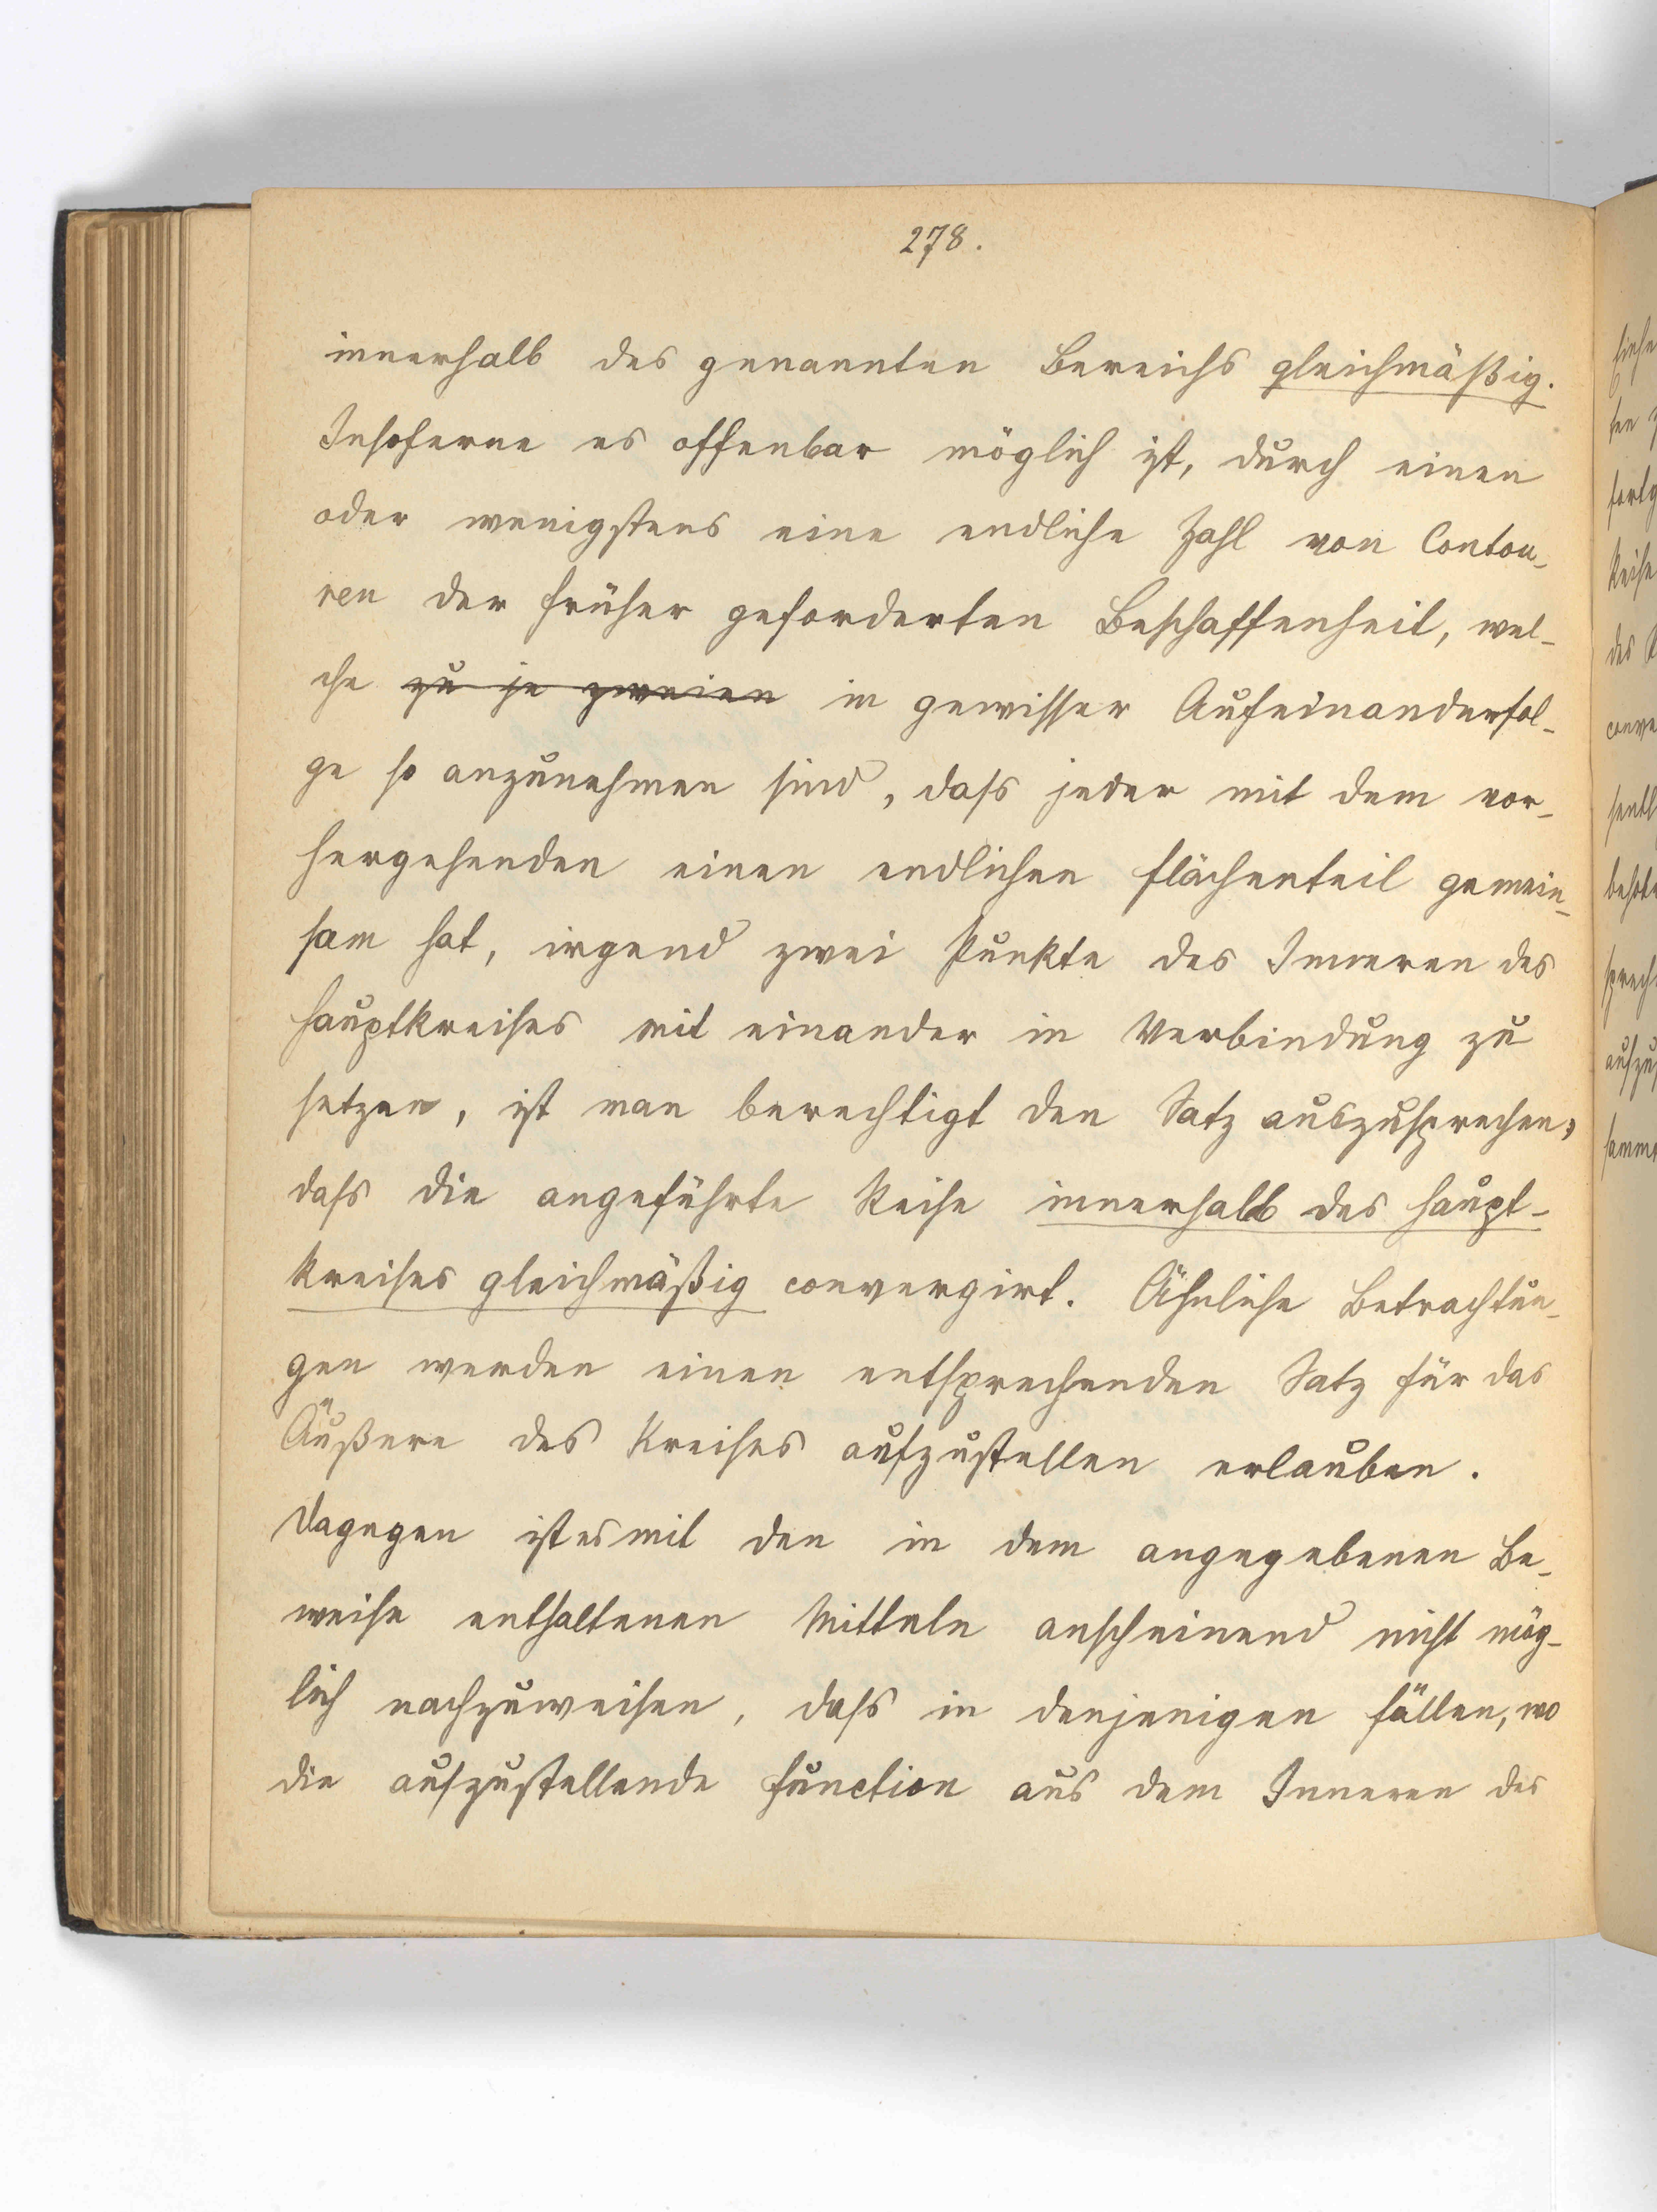 278.
innerhalb des genannten Bereichs gleichmäßig.
Insoferne es offenbar möglich ist, durch einen
oder wenigstens eine endliche Zahl von Contou-
ren der früher geforderten Beschaffenheit, wel-
che zu je zweien in gewisser Aufeinanderfol-
ge so anzunehmen sind, dass jeder mit dem vor-
hergehenden einen endlichen Flächenteil gemein-
sam hat, irgend zwei Punkte des Inneren des
Hauptkreises mit einander in Verbindung zu
setzen, ist man berechtigt den Satz auszusprechen,
dass die angeführte Reihe innerhalb des Haupt-
kreises gleichmäßig convergirt. Ähnliche Betrachtun-
gen werden einen entsprechenden Satz für das
Äußere des Kreises aufzustellen erlauben.
Dagegen ist es mit den in dem angegebenen Be-
weise enthaltenen Mitteln anscheinend nicht mög-
lich nachzuweisen, dass in denjenigen Fällen, wo
die aufzustellende Function aus dem Inneren des